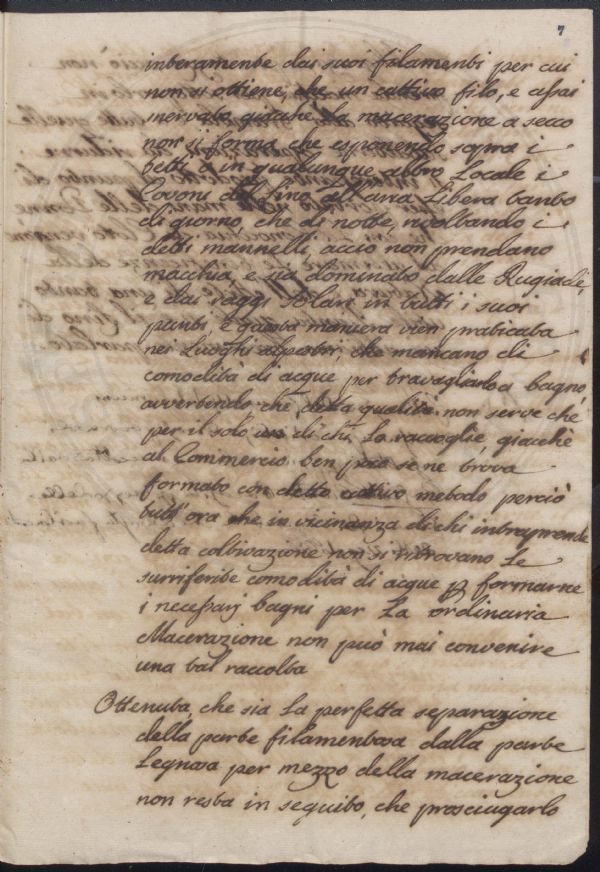 7
interamente dai suoi filamenti per cui
non si ottiene, che un cattivo filo, e assai
snervato giacchè la macerazione a secco
non si forma, che esponendo sopra i
tetti, o in qualunque altro Locale i
Covoni del Lino all'aria Libera tanto
di giorno, che di notte, rivoltando i
detti mannelli, acciò non prendano
macchia, e sia dominato dalle Rugiade,
e dai raggi solari in tutti i suoi
punti, e questa maniera vien praticata
nei Luoghi alpestri, che mancano di
comodità di acque per travagliarlo a bagno,
avvertendo che detta qualità non serve che
per il solo uso di chi La raccoglie, giacchè
al Commercio ben poco se ne trova
formato con detto cattivo metodo perciò
tutt'ora che in vicinanza di chi intraprende
detta coltivazione non si ritrovano Le
surriferite comodità di acque p formarne
i necessarj bagni per La ordinaria
Macerazione non può mai convenire
una tal raccolta
Ottenuta, che sia La perfetta separazione
della parte filamentosa dalla parte
Legnosa per mezzo della macerazione
non resta in seguito, che prosciugarlo